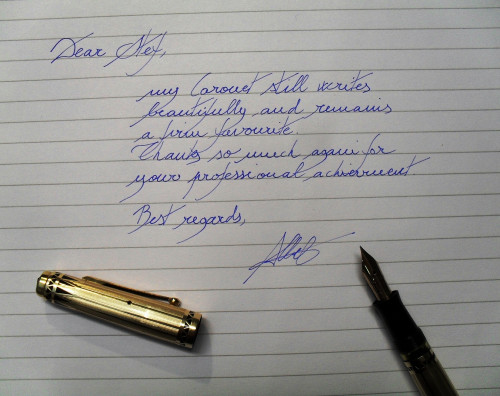 Dear Stef,
my Conset still writes
beautifully and remains
a firm favourite.
Thanks so much again for
your professional achievement
Best regards,